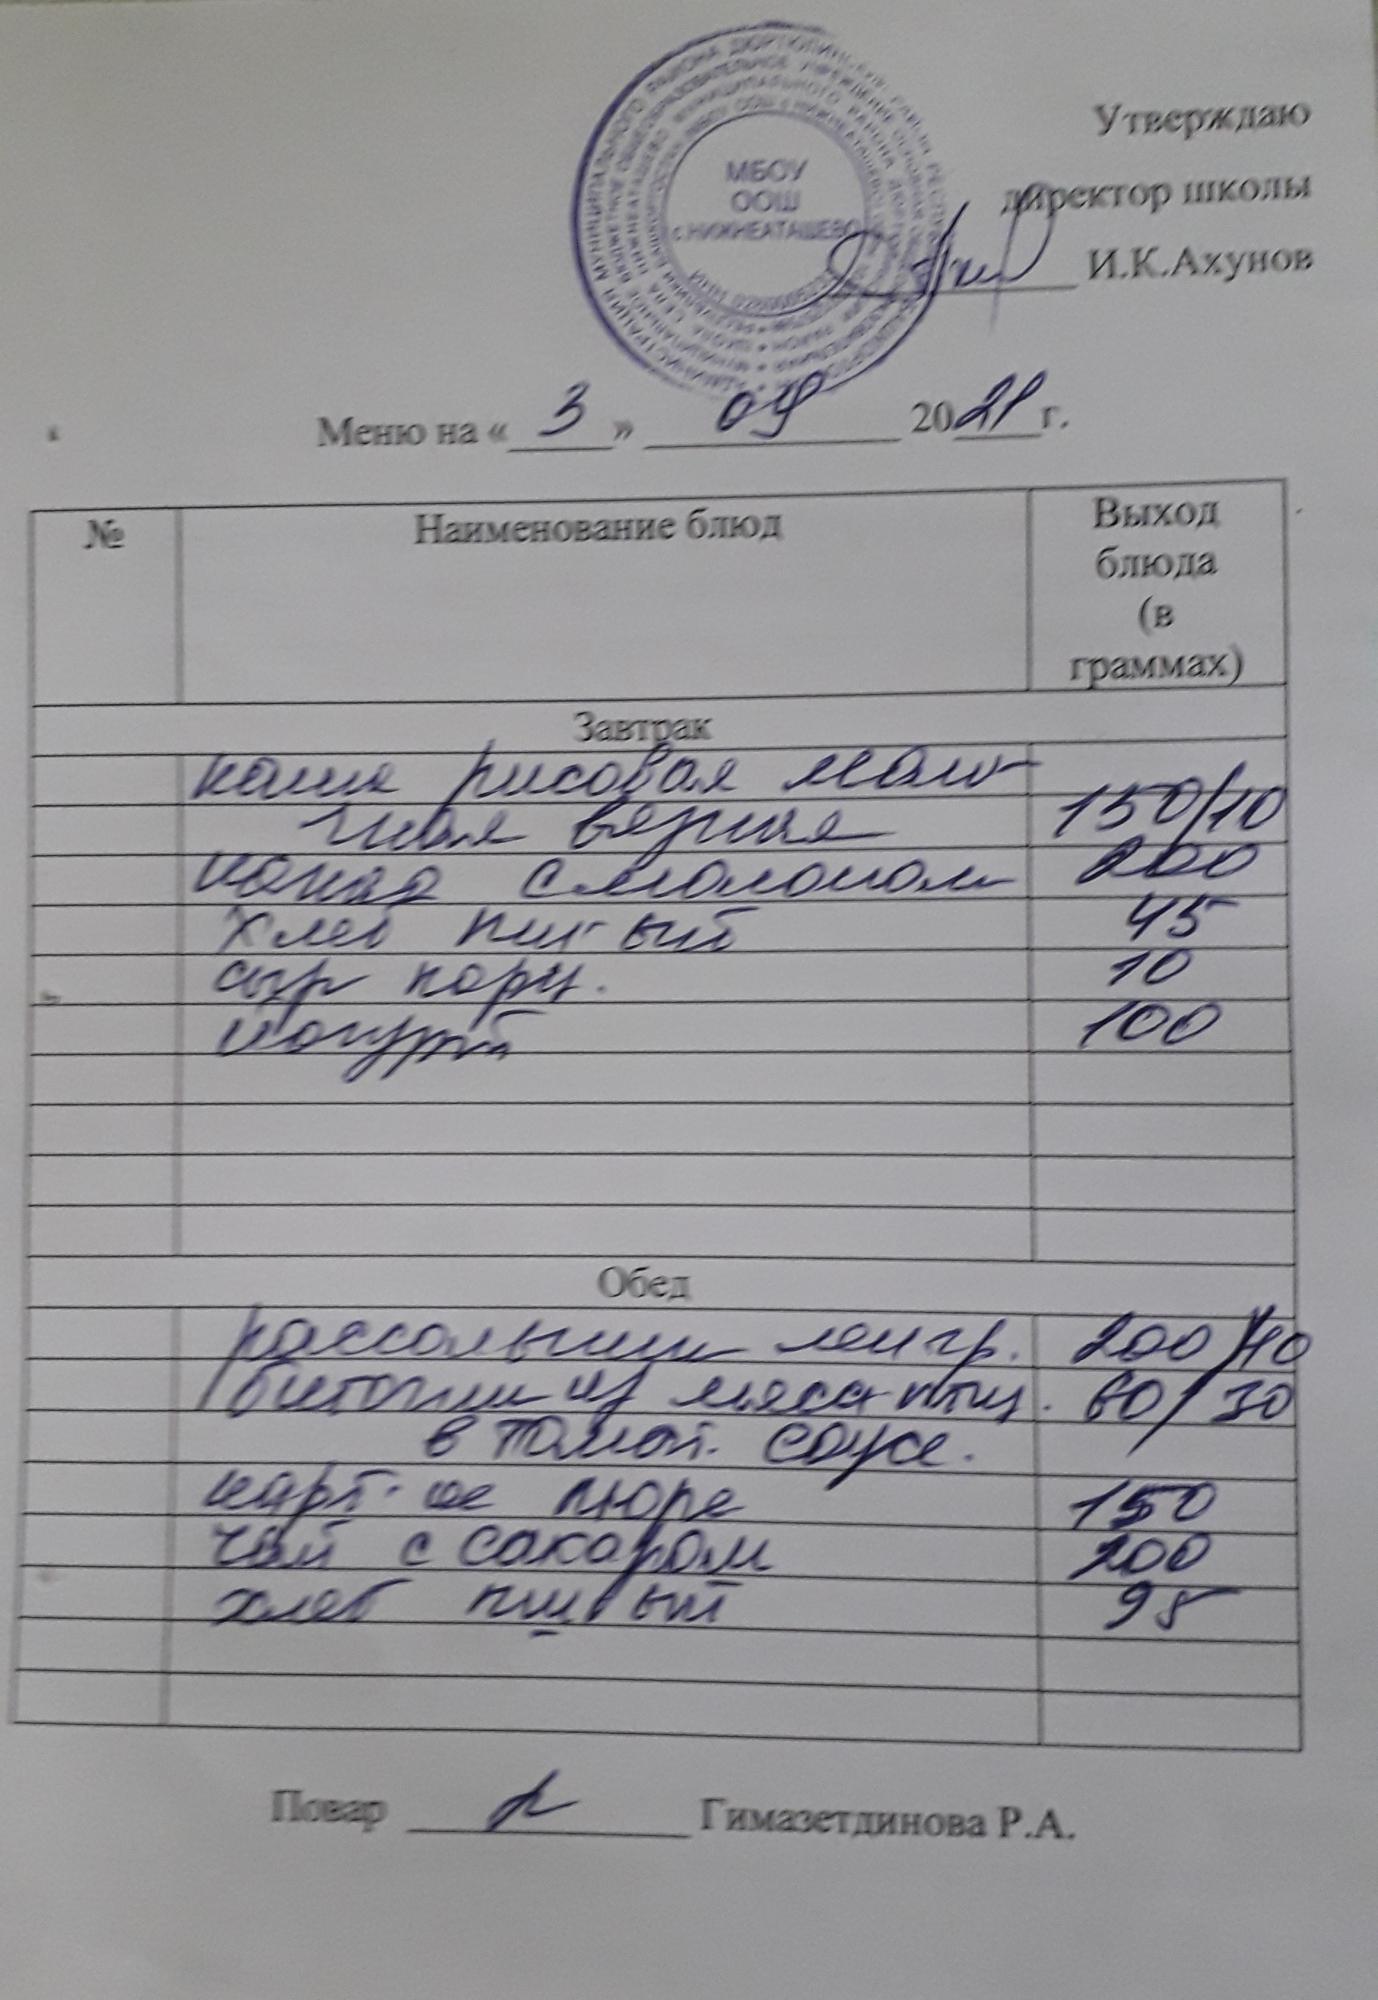 МБОУ
ООШ
с НИЖНЕАТАШЕВО
Утверждаю
директор школы
И.К.Ахунов
Меню на « 3 » 09 2021 г.
№ Наименование блюд Выход
блюда
(в
граммах)
Завтрак
каша рисовая молоч-
ная вязкая 150/10
какао с молоком 200
хлеб пш-ый 45
сыр порц. 10
йогурт 100
Обед
рассольник ленгр. 200/10
биточки из мяса птиц. 60/30
в томат. соусе.
карт-ое пюре 150
чай с сахаром 200
хлеб пш-ый 95
Повар Гимазетдинова Р.А.